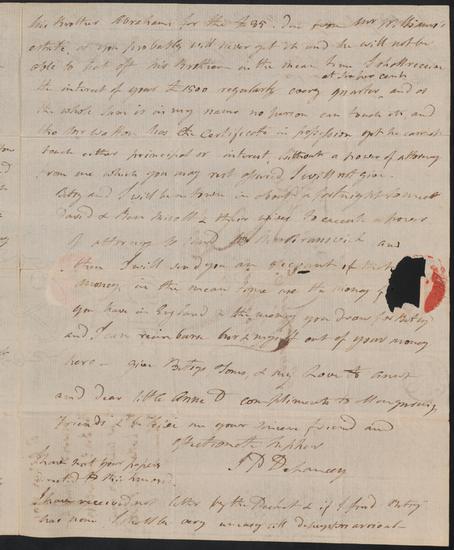 his Brother Abraham for the £35. Due from Mrs
estate, as you probably will never get it and he will not be
able to put off his Brethren in the mean time I shall receive
at six per cent
the interest of your £1500 regularly every quarter, and as
the whole sum is in my name no person can touch it, and
tho Mr Walton has the Certificate in possession yet he cannot
touch either principal or interest, without a power of attorney
from me which you may rest assured I will not give.
Betsy and I will be in town in about a fortnight to meet
David & & their wives to execute a power
of attorney to and
then I will send you an account of the
money, in the mean time use the money
you have in England & the money you draw for Betsy
and I can reimburse her & myself out of your money
here - give Betsys Love, & my Love to Aunt
and dear little Anne D compliments to
friends & believe me your sincere friend and
affectionate Nephew
J D
I have not your papers
I have received not letter by the Packet & if I find Betsy
has none I shall be very uneasy till arrival